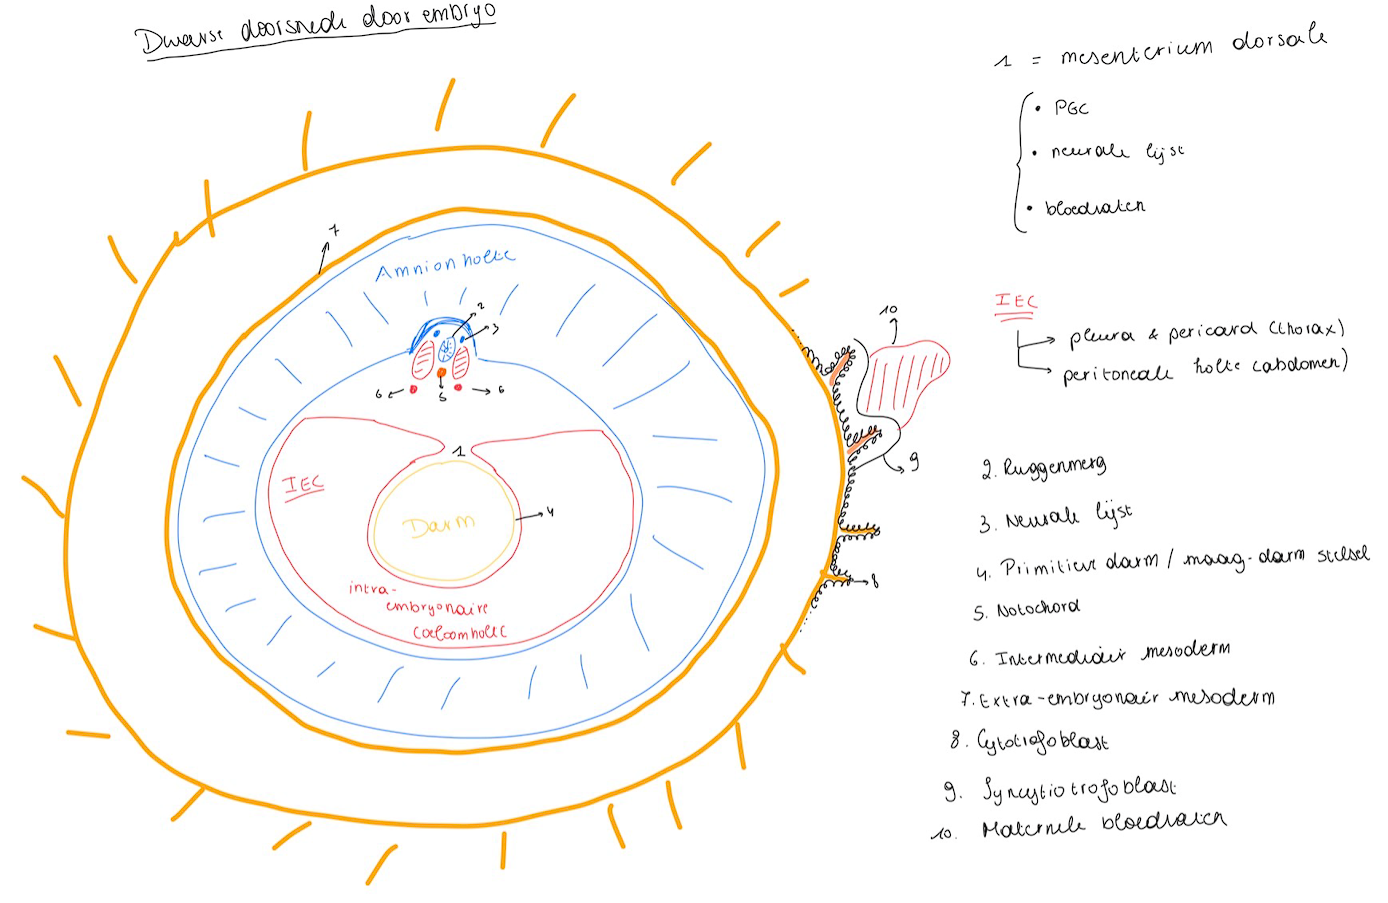 Dwarse doorsnede door embryo
1 = mesenterium dorsale
• PGC
• neurale lijst
• bloedvaten
IEC
pleura & pericard (thorax)
peritoneale holte (abdomen)
2. Ruggenmerg
3. Neurale lijst
4. Primitieve darm / maag-darm stelsel
5. Notochord
6. Intermediair mesoderm
7. Extra-embryonair mesoderm
8. Cytotrofoblast
9. Syncytiotrofoblast
10. Maternele bloedvaten
7
Amnionholte
2
3
6
5
6
1
IEC
Darm
4
intra-
embryonaire
coeloomholte
10
9
8